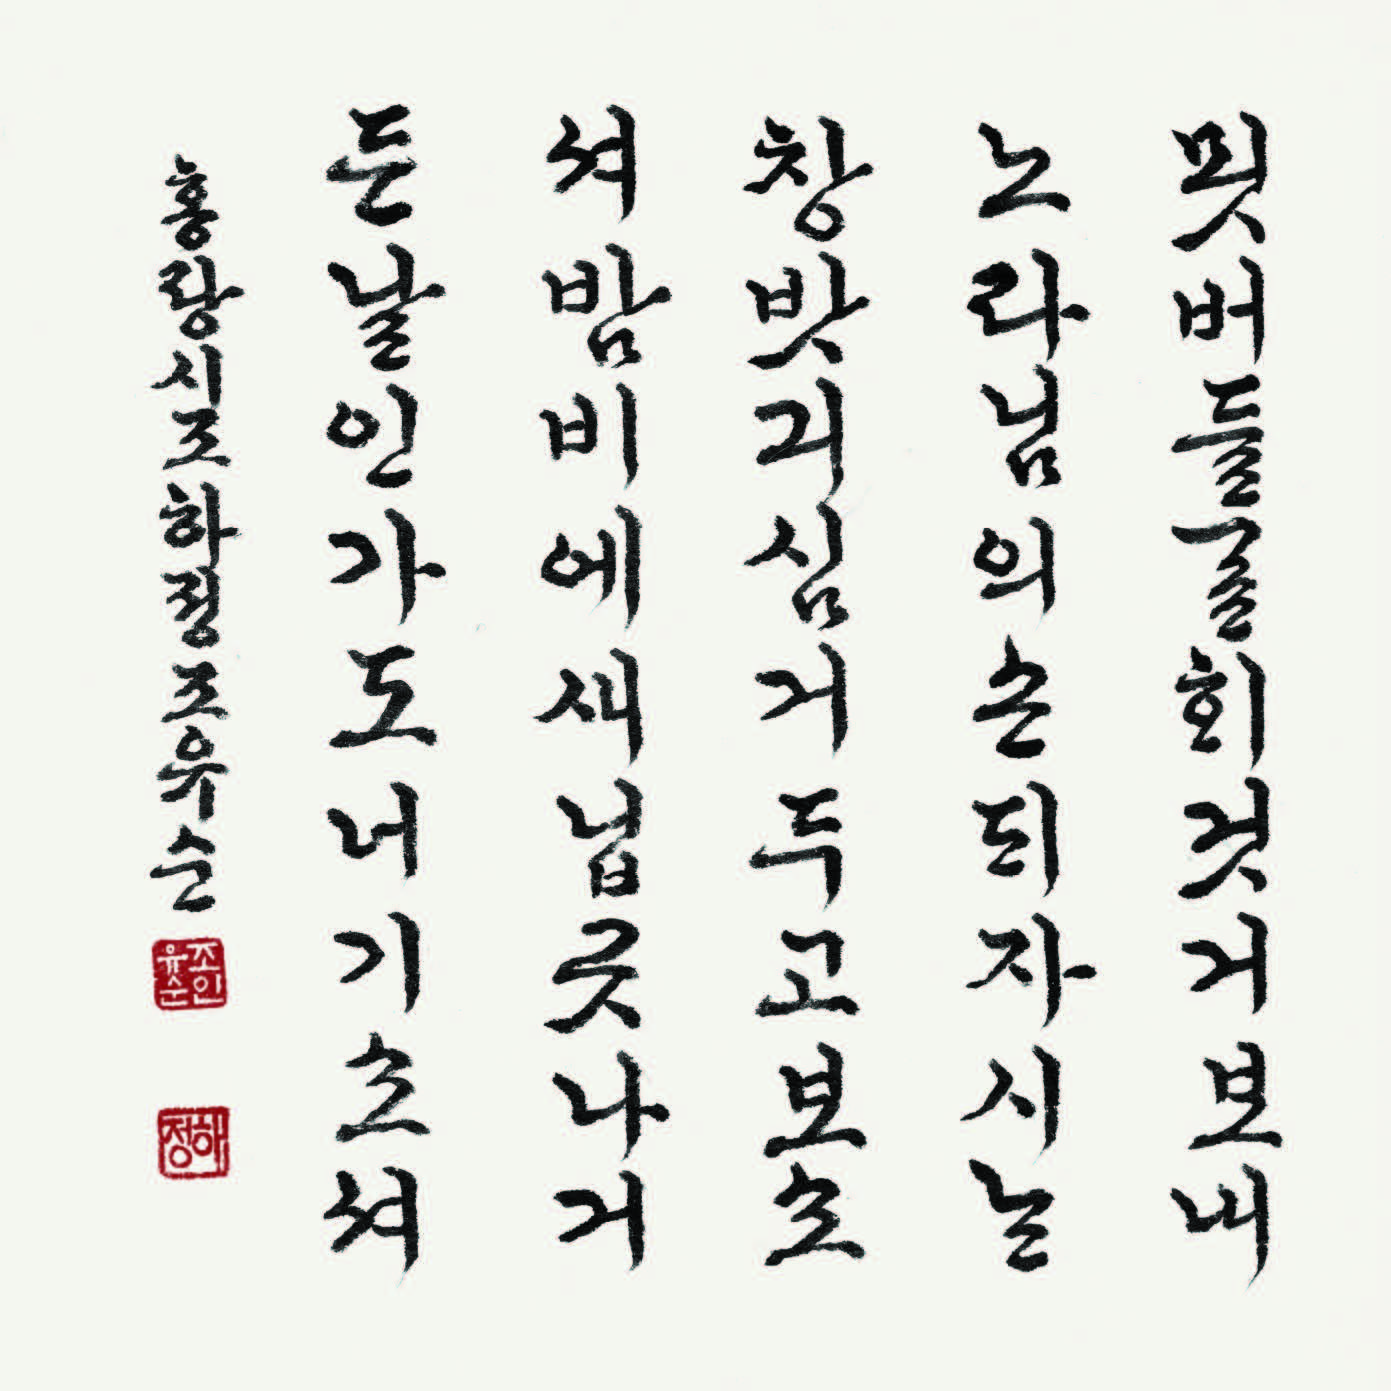 묏버들골회것거보내
노라님의손듸자시는
창밧긔심거두고보소
셔밤비에새닙곳나거
든날인가도너기소셔
홍랑시조하정조유순
조인유순
하정